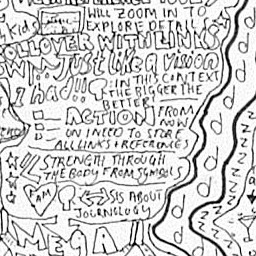 WILL ZOOM IN TO
EXPLORE DETAIL
Kid
ROLLOVER WITH LINKS
Just like a vision
I had!!
IN THIS CONTEXT
THE BIGGER THE
BETTER!
ACTION FROM
NOW
ON I NEED TO STORE
ALL LINKS + REFERENCES
STRENGTH THROUGH
THE BODY FROM SYMBOLS
I AM
? SIS ABOUT
JOURNOLOGY
MEGA!!
Z Z Z Z Z Z